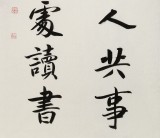 人共事
處讀書